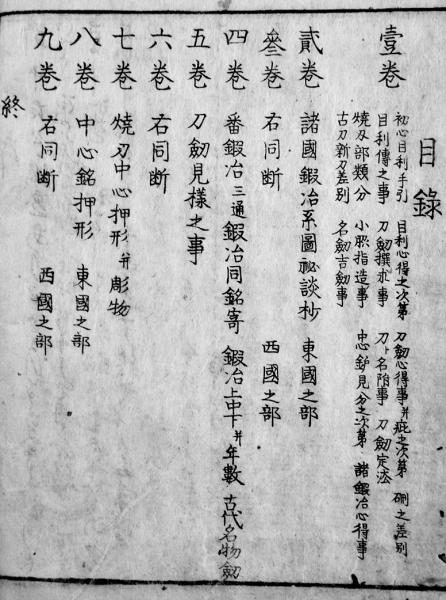 目録
壹巻
初心目利手引 目利心得之次第 刀劔心得事并疵之次第 砌之差別
目利傳之事 刀劔撰求事 刀名所事 刀劔定法
焼刃部類分 小脇指造事 中心鈩見分之次第 諸鍛冶心得事
古刀新刀差別 名劔吉劔事
貳巻 諸國鍛冶系圖祕談抄 東國之部
叁巻 右同断 西國之部
四巻 番鍛冶三通 鍛冶同銘寄 鍛冶上中下并年數 古代名物劔
五巻 刀劔見様之事
六巻 右同断
七巻 焼刃中心押形并彫物
八巻 中心銘押形 東國之部
九巻 右同断 西國之部
終